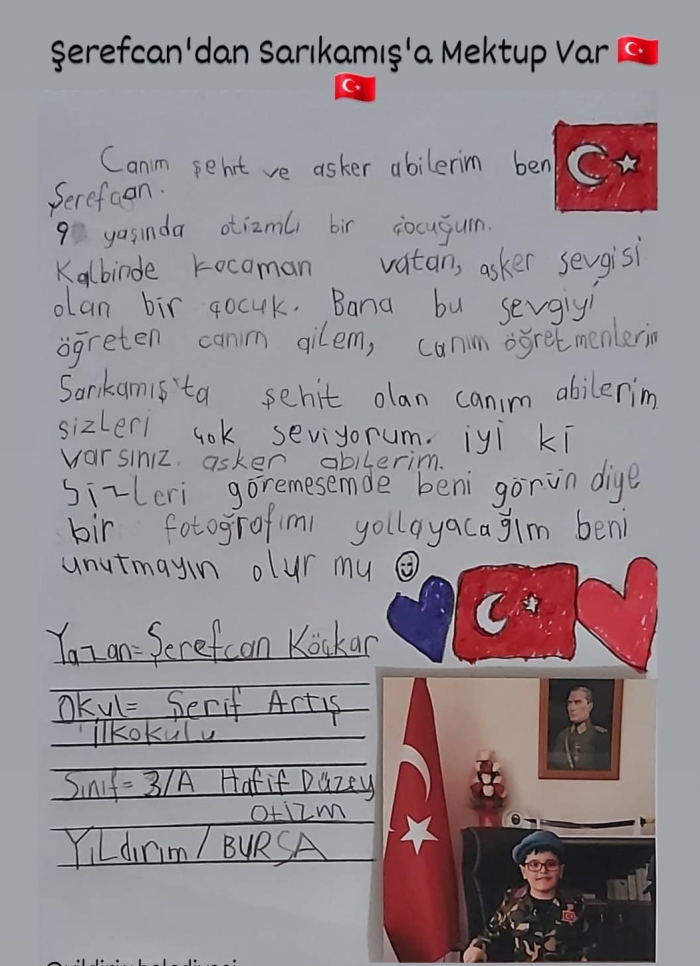 Şerefcan'dan Sarıkamış'a Mektup Var 🇹🇷
🇹🇷
Canım şehit ve asker abilerim ben
Şerefcan.
9 yaşında otizmli bir çocuğum.
Kalbinde kocaman vatan, asker sevgisi
olan bir çocuk. Bana bu sevgiyi
öğreten canım ailem, canım öğretmenlerim
Sarıkamış'ta şehit olan canım abilerim
sizleri çok seviyorum. iyi ki
varsınız. asker abilerim.
Sizleri göremesemde beni görün diye
bir fotoğrafımı yollayacağım beni
unutmayın olur mu ☺
Yazan= Şerefcan Köçkar
Okul= Şerif Artış
İlkokulu
Sınıf= 3/A Hafif Düzey
Otizm
Yıldırım / BURSA